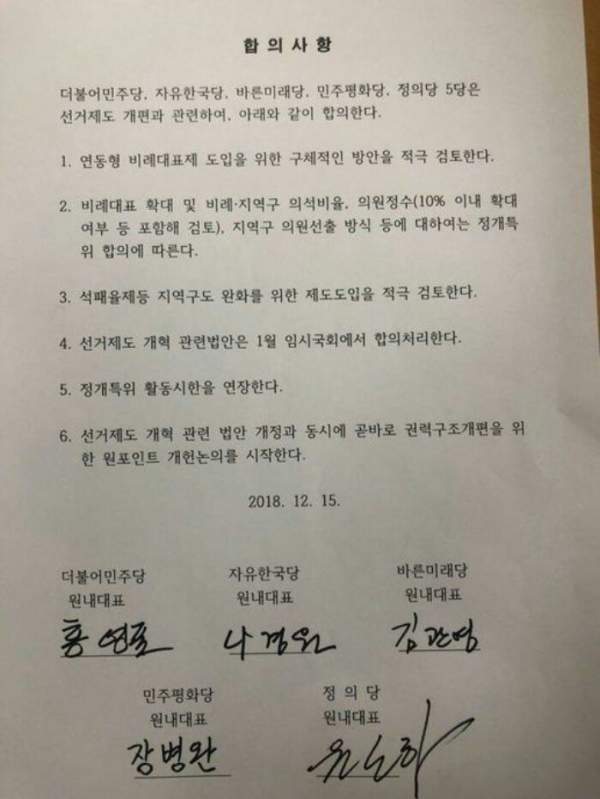 합 의 사 항
더불어민주당, 자유한국당, 바른미래당, 민주평화당, 정의당 5당은
선거제도 개편과 관련하여, 아래와 같이 합의한다.
1. 연동형 비례대표제 도입을 위한 구체적인 방안을 적극 검토한다.
2. 비례대표 확대 및 비례·지역구 의석비율, 의원정수(10% 이내 확대
여부 등 포함해 검토), 지역구 의원선출 방식 등에 대하여는 정개특
위 합의에 따른다.
3. 석패율제등 지역구도 완화를 위한 제도도입을 적극 검토한다.
4. 선거제도 개혁 관련법안은 1월 임시국회에서 합의처리한다.
5. 정개특위 활동시한을 연장한다.
6. 선거제도 개혁 관련 법안 개정과 동시에 곧바로 권력구조개편을 위
한 원포인트 개헌논의를 시작한다.
2018. 12. 15.
더불어민주당 자유한국당 바른미래당
원내대표 원내대표 원내대표
홍영표 나경원 김관영
민주평화당 정 의 당
원내대표 원내대표
장병완 윤소하